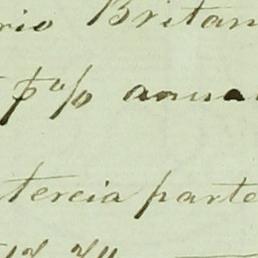 rio Britan
p% anual
tercia parte